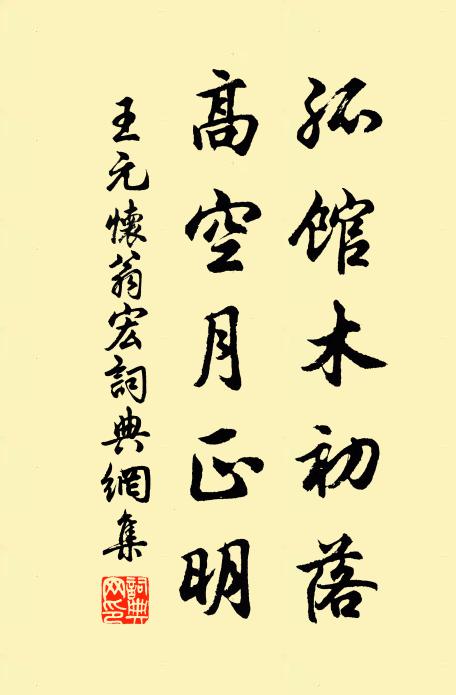 孤館木初落
高空月正明
王元懷翁宏詞典網集
詞典網印